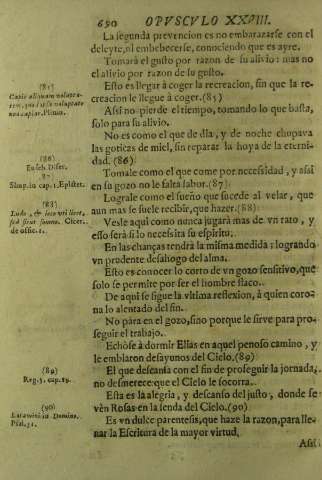 690 OPUSCULO XXVIII.
La segunda prevencion es no embarazarse con el
deleyte, ni embebecerse, conociendo que es ayre.
Tomarà el gusto por razon de su alivio: mas no
el alivio por razon de su gusto.
Esto es llegar à coger la recreacion, sin que la re-
creacion le llegue à coger.(85)
Assi no pierde el tiempo, tomando lo que basta,
solo para su alivio.
No es como el que de dia, y de noche chupava
las goticas de miel, sin reparar la hoya de la eterni-
dad. (86)
Tomale como el que come por necessidad, y assi
en su gozo no le falta labor.(87)
Lograle como el sueño que sucede al velar, que
aun mas se suele recibir, que hazer.(88)
Vesle aqui como nunca jugarà mas de vn rato, y
esso serà si lo necessita su espiritu.
En las chanças tendrà la misma medida: logrando
vn prudente desahogo del alma.
Esto es conocer lo corto de vn gozo sensitivo, que
solo se permite por ser el hombre flaco.
De aqui se sigue la vltima reflexion, à quien coro-
na lo alentado del fin.
No pàra en el gozo, sino porque le sirve para pro-
seguir el trabajo.
Echòse à dormir Elias en aquel penoso camino, y
le embiaron desayunos del Cielo.(89)
El que descansa con el fin de proseguir la jornada,
no desmerece que el Cielo le socorra.
Esta es la alegria, y descanso del justo, donde se
vèn Rosas en la senda del Cielo.(90)
Es vn dulce parentesis, que haze la razon, para lle-
nar la Escritura de la mayor virtud.
Assi
(85)
(86)
87
Simp. in cap. 1. Epistet.
(88)
Ludo, & ioco vti licet,
sed sicut somno. Cicer.
de offic. 1.
(89)
Reg. 3. cap. 19.
(90)
Lætamini in Domino.
Psal. 31.